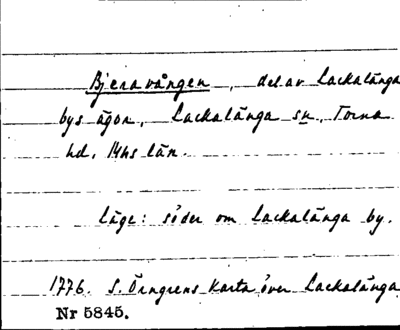 Bjeravången, del av Lackalänga
bys ägor, Lackalänga sn, Torna
hd, Mhs län.
Läge: söder om Lackalänga by.
1776. S. Örngrens karta över Lackalänga
Nr 5845.